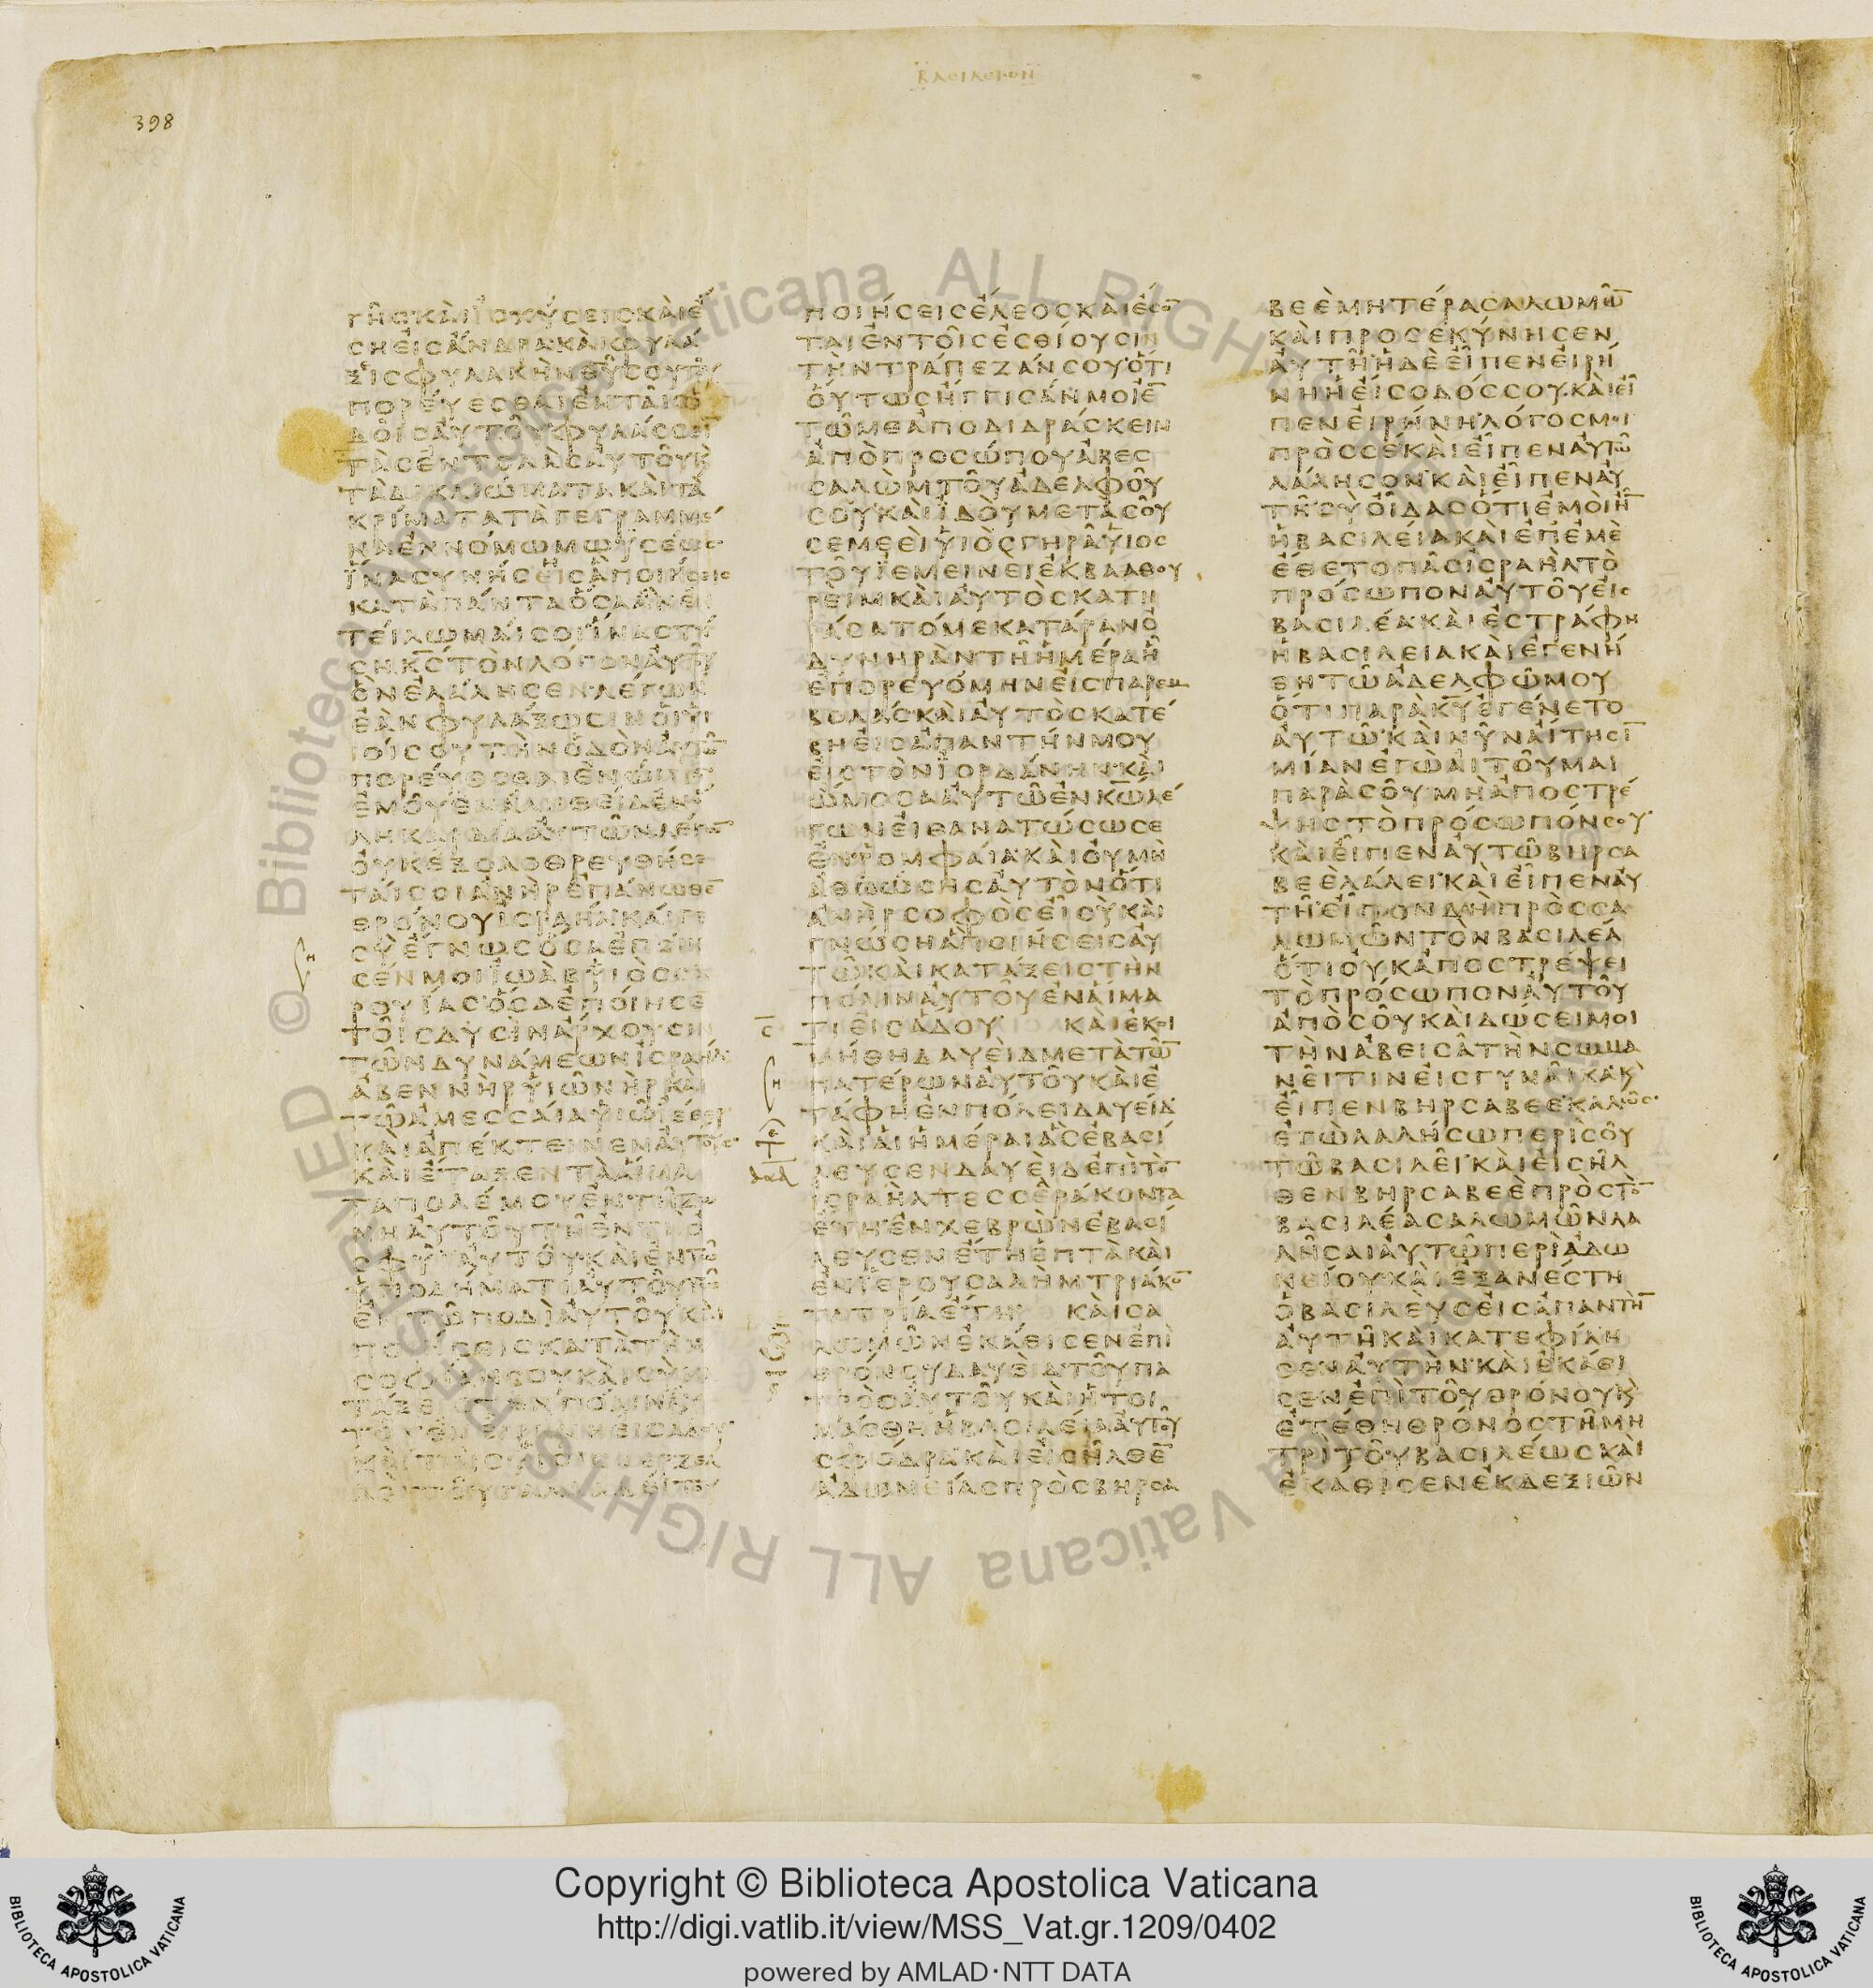 ΒΑϹΙΛΕΙΩΝ
398
ΓΗϹΚΑΙΙϹΧΥϹΕΙϹΚΑΙΕ
ϹΗΕΙϹΑΝΔΡΑΚΑΙΦΥΛΑ
ΞΕΙϹΦΥΛΑΚΗΝΘΥϹΟΥΤΟΥ
ΠΟΡΕΥΕϹΘΑΙΕΝΤΑΙϹΟ
ΔΟΙϹΑΥΤΟΥΦΥΛΑϹϹΕΙΝ
ΤΑϹΕΝΤΟΛΑϹΑΥΤΟΥΚΑΙ
ΤΑΔΙΚΑΙΩΜΑΤΑΚΑΙΤΑ
ΚΡΙΜΑΤΑΤΑΓΕΓΡΑΜΜΕ
ΝΑΕΝΝΟΜΩΜΩΥϹΕΩϹ
ΙΝΑϹΥΝΗϹΕΙϹΑΠΟΙΗϹΕΙϹ
ΚΑΤΑΠΑΝΤΑΟϹΑΑΝΕΝ
ΤΕΙΛΩΜΑΙϹΟΙΙΝΑϹΤΗ
ϹΗΚϹΤΟΝΛΟΓΟΝΑΥΤΟΥ
ΟΝΕΛΑΛΗϹΕΝΛΕΓΩΝ
ΕΑΝΦΥΛΑΞΩϹΙΝΟΙΥΙ
ΟΙϹΟΥΤΗΝΟΔΟΝΑΥΤΩ̅
ΠΟΡΕΥΕϹΘΑΙΕΝΩΠΙΟ̅
ΕΜΟΥΕΝΑΛΗΘΕΙΑΕΝΟ
ΛΗΚΑΡΔΙΑΑΥΤΩΝΛΕΓΩ̅
ΟΥΚΕΞΟΛΟΘΡΕΥΘΗϹΕ
ΤΑΙϹΟΙΑΝΗΡΕΠΑΝΩΘΕ̅
ΘΡΟΝΟΥΙϹΡΑΗΛΚΑΙΓΕ
ϹΥΕΓΝΩϹΟϹΑΕΠΟΙΗ
ϹΕΝΜΟΙΙΩΑΒΥΙΟϹϹΑ
ΡΟΥΙΑϹΟϹΑΕΠΟΙΗϹΕ̅
ΤΟΙϹΔΥϹΙΝΑΡΧΟΥϹΙΝ
ΤΩΝΔΥΝΑΜΕΩΝΙϹΡΑΗΛ
ΑΒΕΝΝΗΡΥΙΩΝΗΡΚΑΙ
ΤΩΑΜΕϹϹΑΙΑΥΙΩΙΕΘΕΡ
ΚΑΙΑΠΕΚΤΕΙΝΕΝΑΥΤΟΥϹ
ΚΑΙΕΤΑΞΕΝΤΑΑΙΜΑ
ΤΑΠΟΛΕΜΟΥΕΝΤΗΖΩ
ΝΗΑΥΤΟΥΤΗΕΝΤΗΟ
ϹΦΥΙΑΥΤΟΥΚΑΙΕΝΤΩ
ΥΠΟΔΗΜΑΤΙΑΥΤΟΥΤΩ
ΕΝΤΩΠΟΔΙΑΥΤΟΥΚΑΙ
ΠΟΙΗϹΕΙϹΚΑΤΑΤΗΝ
ϹΟΦΙΑΝϹΟΥΚΑΙΟΥΚΑ
ΤΑΞΕΙϹΤΗΝΠΟΛΙΑΝΑΥ
ΤΟΥΕΝΕΙΡΗΝΗΕΙϹΑΔΟΥ
ΚΑΙΤΟΙϹΥΙΟΙϹΒΕΡΖΕΛ
ΠΟΙΗϹΕΙϹΕΛΕΟϹΚΑΙΕϹΟ̅
ΤΑΙΕΝΤΟΙϹΕϹΘΙΟΥϹΙΝ
ΤΗΝΤΡΑΠΕΖΑΝϹΟΥΟΤΙ
ΟΥΤΩϹΗΓΓΙϹΑΝΜΟΙΕ̅
ΤΩΜΕΑΠΟΔΙΔΡΑϹΚΕΙΝ
ΑΠΟΠΡΟϹΩΠΟΥΑΒΕϹ
ϹΑΛΩΜΤΟΥΑΔΕΛΦΟΥ
ϹΟΥΚΑΙΙΔΟΥΜΕΤΑϹΟΥ
ϹΕΜΕΕΙΥΙΟϹΓΗΡΑΥΙΟϹ
ΤΟΥΙΕΜΕΙΝΕΙΕΚΒΑΑΘΟΥ
ΡΕΙΜΚΑΙΑΥΤΟϹΚΑΤΗ
ΡΑϹΑΤΟΜΕΚΑΤΑΡΑΝΟ
ΔΥΝΗΡΑΝΤΗΗΜΕΡΑΗ
ΕΠΟΡΕΥΟΜΗΝΕΙϹΠΑΡΕΜ
ΒΟΛΑϹΚΑΙΑΥΤΟϹΚΑΤΕ
ΒΗΕΙϹΑΠΑΝΤΗΝΜΟΥ
ΕΙϹΤΟΝΙΟΡΔΑΝΗΝΚΑΙ
ΩΜΟϹΑΑΥΤΩΕΝΚΩΛΕ
ΓΩΝΕΙΘΑΝΑΤΩϹΩϹΕ
ΕΝΡΟΜΦΑΙΑΚΑΙΟΥΜΗ
ΑΘΩΩϹΗϹΑΥΤΟΝΟΤΙ
ΑΝΗΡϹΟΦΟϹΕΙϹΥΚΑΙ
ΓΝΩϹΗΑΠΟΙΗϹΕΙϹΑΥ
ΤΩΚΑΙΚΑΤΑΞΕΙϹΤΗΝ
ΠΟΛΙΝΑΥΤΟΥΕΝΑΙΜΑ
ΤΙΕΙϹΑΔΟΥ ΚΑΙΕΚΟΙ
ΜΗΘΗΔΑΥΕΙΔΜΕΤΑΤΩ̅
ΠΑΤΕΡΩΝΑΥΤΟΥΚΑΙΕ
ΤΑΦΗΕΝΠΟΛΕΙΔΑΥΕΙΔ
ΚΑΙΑΙΗΜΕΡΑΙΑϹΕΒΑϹΙ
ΛΕΥϹΕΝΔΑΥΕΙΔΕΠΙΤΟ̅
ΙϹΡΑΗΛΤΕϹϹΕΡΑΚΟΝΤΑ
ΕΤΗΕΝΧΕΒΡΩΝΕΒΑϹΙ
ΛΕΥϹΕΝΕΤΗΕΠΤΑΚΑΙ
ΕΝΙΕΡΟΥϹΑΛΗΜΤΡΙΑΚΟ̅
ΤΑΤΡΙΑΕΤΗ ΚΑΙϹΑ
ΛΩΜΩΝΕΚΑΘΙϹΕΝΕΠΙ
ΘΡΟΝΟΥΔΑΥΕΙΔΤΟΥΠΑ
ΤΡΟϹΑΥΤΟΥΚΑΙΗΤΟΙ
ΜΑϹΘΗΗΒΑϹΙΛΕΙΑΑΥΤΟΥ
ϹΦΟΔΡΑΚΑΙΕΙϹΗΛΘΕ̅
ΑΔΩΝΕΙΑϹΠΡΟϹΒΗΡϹΑ
ΒΕΕΜΗΤΕΡΑϹΑΛΩΜΩ̅
ΚΑΙΠΡΟϹΕΚΥΝΗϹΕΝ
ΑΥΤΗΗΔΕΕΙΠΕΝΕΙΡΗ
ΝΗΗΕΙϹΟΔΟϹϹΟΥΚΑΙΕΙ
ΠΕΝΕΙΡΗΝΗΛΟΓΟϹΜΟΙ
ΠΡΟϹϹΕΚΑΙΕΙΠΕΝΑΥΤΩ
ΛΑΛΗϹΟΝΚΑΙΕΙΠΕΝΑΥ
ΤΗϹΥΟΙΔΑϹΟΤΙΕΜΟΙΗ̅
ΗΒΑϹΙΛΕΙΑΚΑΙΕΠΕΜΕ
ΕΘΕΤΟΠΑϹΙϹΡΑΗΛΤΟ
ΠΡΟϹΩΠΟΝΑΥΤΟΥΕΙϹ
ΒΑϹΙΛΕΑΚΑΙΕϹΤΡΑΦΗ
ΗΒΑϹΙΛΕΙΑΚΑΙΕΓΕΝΗ
ΘΗΤΩΑΔΕΛΦΩΜΟΥ
ΟΤΙΠΑΡΑΚΥΕΓΕΝΕΤΟ
ΑΥΤΩΚΑΙΝΥΝΑΙΤΗϹΙ̅
ΜΙΑΝΕΓΩΑΙΤΟΥΜΑΙ
ΠΑΡΑϹΟΥΜΗΑΠΟϹΤΡΕ
ΨΗϹΤΟΠΡΟϹΩΠΟΝϹΟΥ
ΚΑΙΕΙΠΕΝΑΥΤΩΒΗΡϹΑ
ΒΕΕΛΑΛΕΙΚΑΙΕΙΠΕΝΑΥ
ΤΗΕΙΠΟΝΔΗΠΡΟϹϹΑ
ΛΩΜΩΝΤΟΝΒΑϹΙΛΕΑ
ΟΤΙΟΥΚΑΠΟϹΤΡΕΨΕΙ
ΤΟΠΡΟϹΩΠΟΝΑΥΤΟΥ
ΑΠΟϹΟΥΚΑΙΔΩϹΕΙΜΟΙ
ΤΗΝΑΒΕΙϹΑΤΗΝϹΩΜΑ
ΝΕΙΤΙΝΕΙϹΓΥΝΑΙΚΑΚΑΙ
ΕΙΠΕΝΒΗΡϹΑΒΕΕΚΑΛΩϹ
ΕΓΩΛΑΛΗϹΩΠΕΡΙϹΟΥ
ΤΩΒΑϹΙΛΕΙΚΑΙΕΙϹΗΛ
ΘΕΝΒΗΡϹΑΒΕΕΠΡΟϹΤΟ̅
ΒΑϹΙΛΕΑϹΑΛΩΜΩΝΛΑ
ΛΗϹΑΙΑΥΤΩΠΕΡΙΑΔΩ
ΝΕΙΟΥΚΑΙΕΞΑΝΕϹΤΗ
ΟΒΑϹΙΛΕΥϹΕΙϹΑΠΑΝΤΗ̅
ΑΥΤΗΚΑΙΚΑΤΕΦΙΛΗ
ϹΕΝΑΥΤΗΝΚΑΙΕΚΑΘΙ
ϹΕΝΕΠΙΤΟΥΘΡΟΝΟΥΚΑΙ
ΕΤΕΘΗΘΡΟΝΟϹΤΗΜΗ
ΤΡΙΤΟΥΒΑϹΙΛΕΩϹΚΑΙ
ΕΚΑΘΙϹΕΝΕΚΔΕΞΙΩΝ
© Biblioteca Apostolica Vaticana ALL RIGHTS RESERVED
Copyright © Biblioteca Apostolica Vaticana
http://digi.vatlib.it/view/MSS_Vat.gr.1209/0402
powered by AMLAD·NTT DATA
BIBLIOTECA APOSTOLICA VATICANA
BIBLIOTECA APOSTOLICA VATICANA